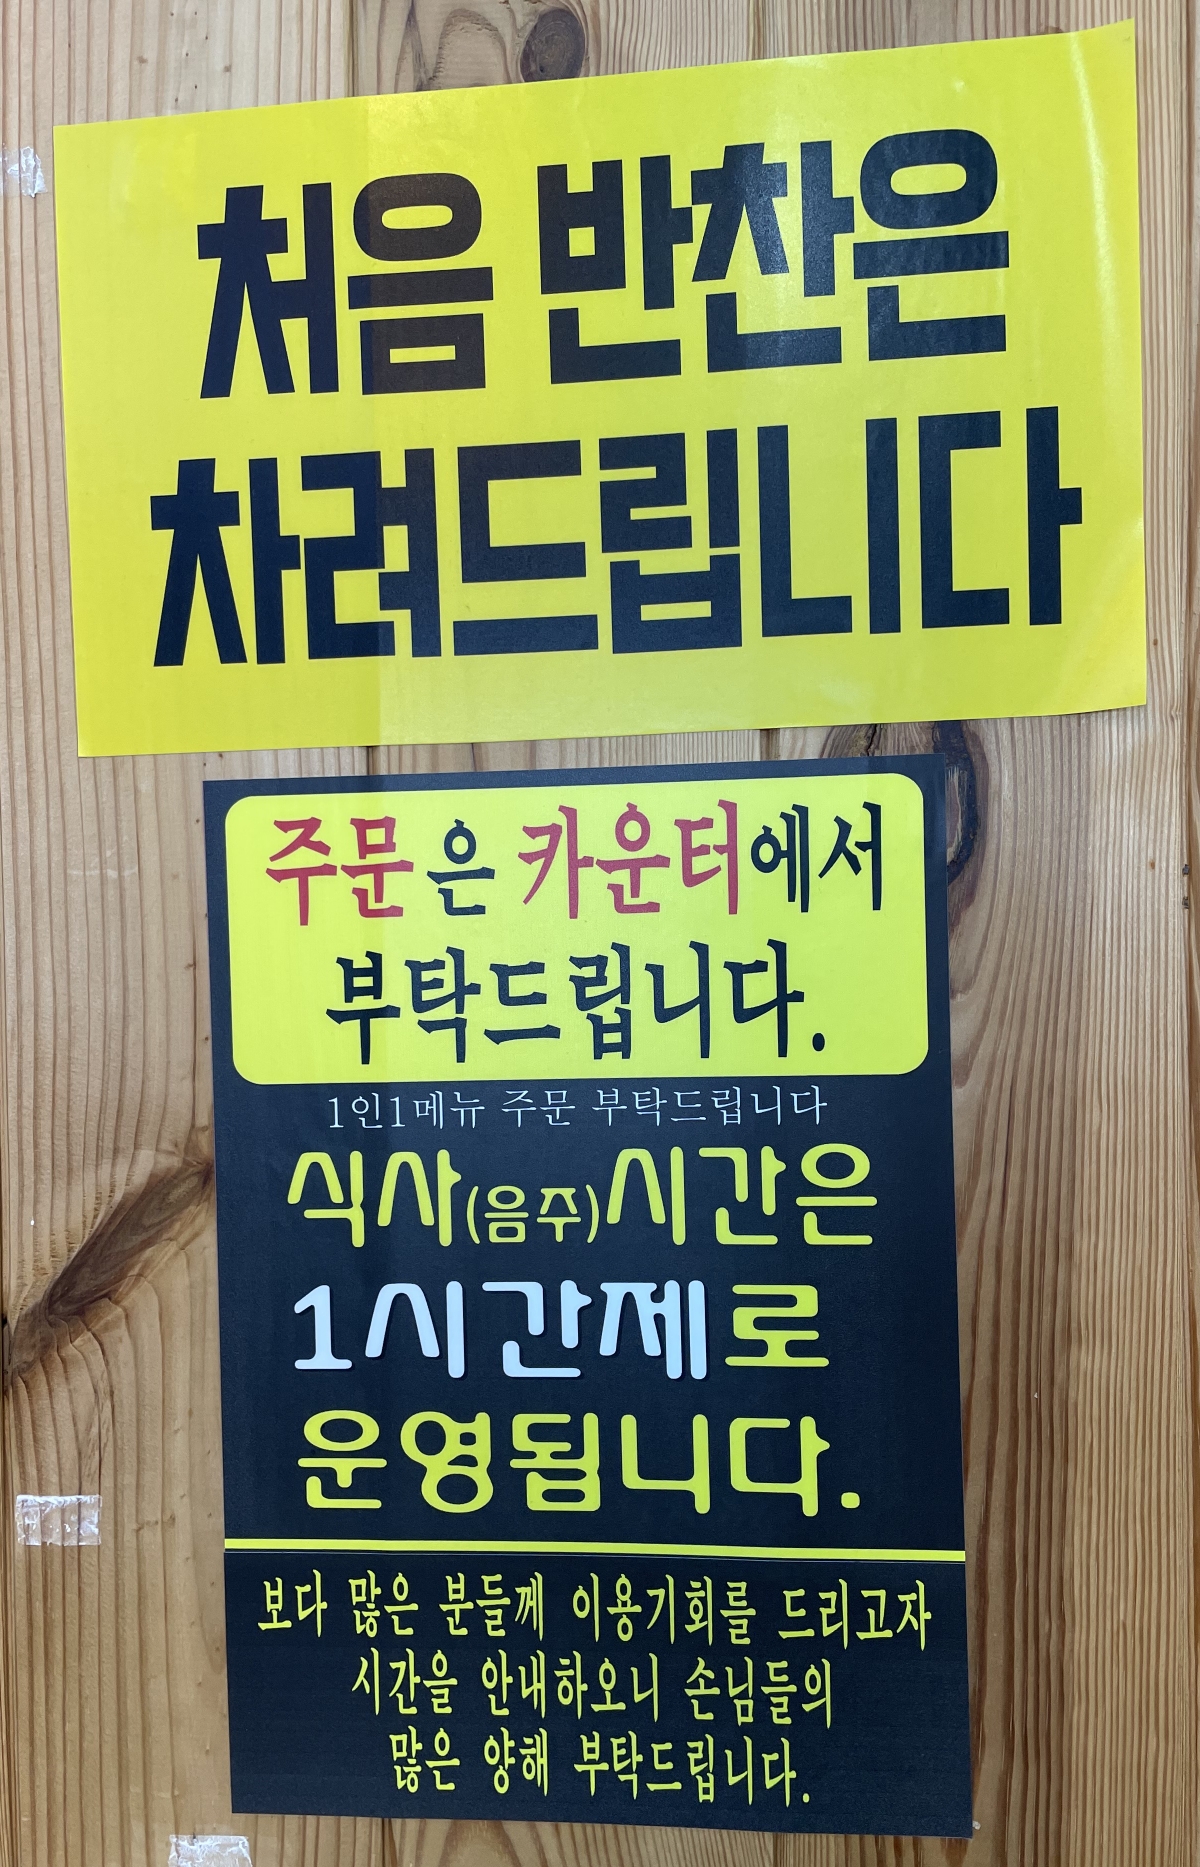 처음 반찬은
차려드립니다
주문은 카운터에서
부탁드립니다.
1인1메뉴 주문 부탁드립니다
식사(음주)시간은
1시간제로
운영됩니다.
보다 많은 분들께 이용기회를 드리고자
시간을 안내하오니 손님들의
많은 양해 부탁드립니다.